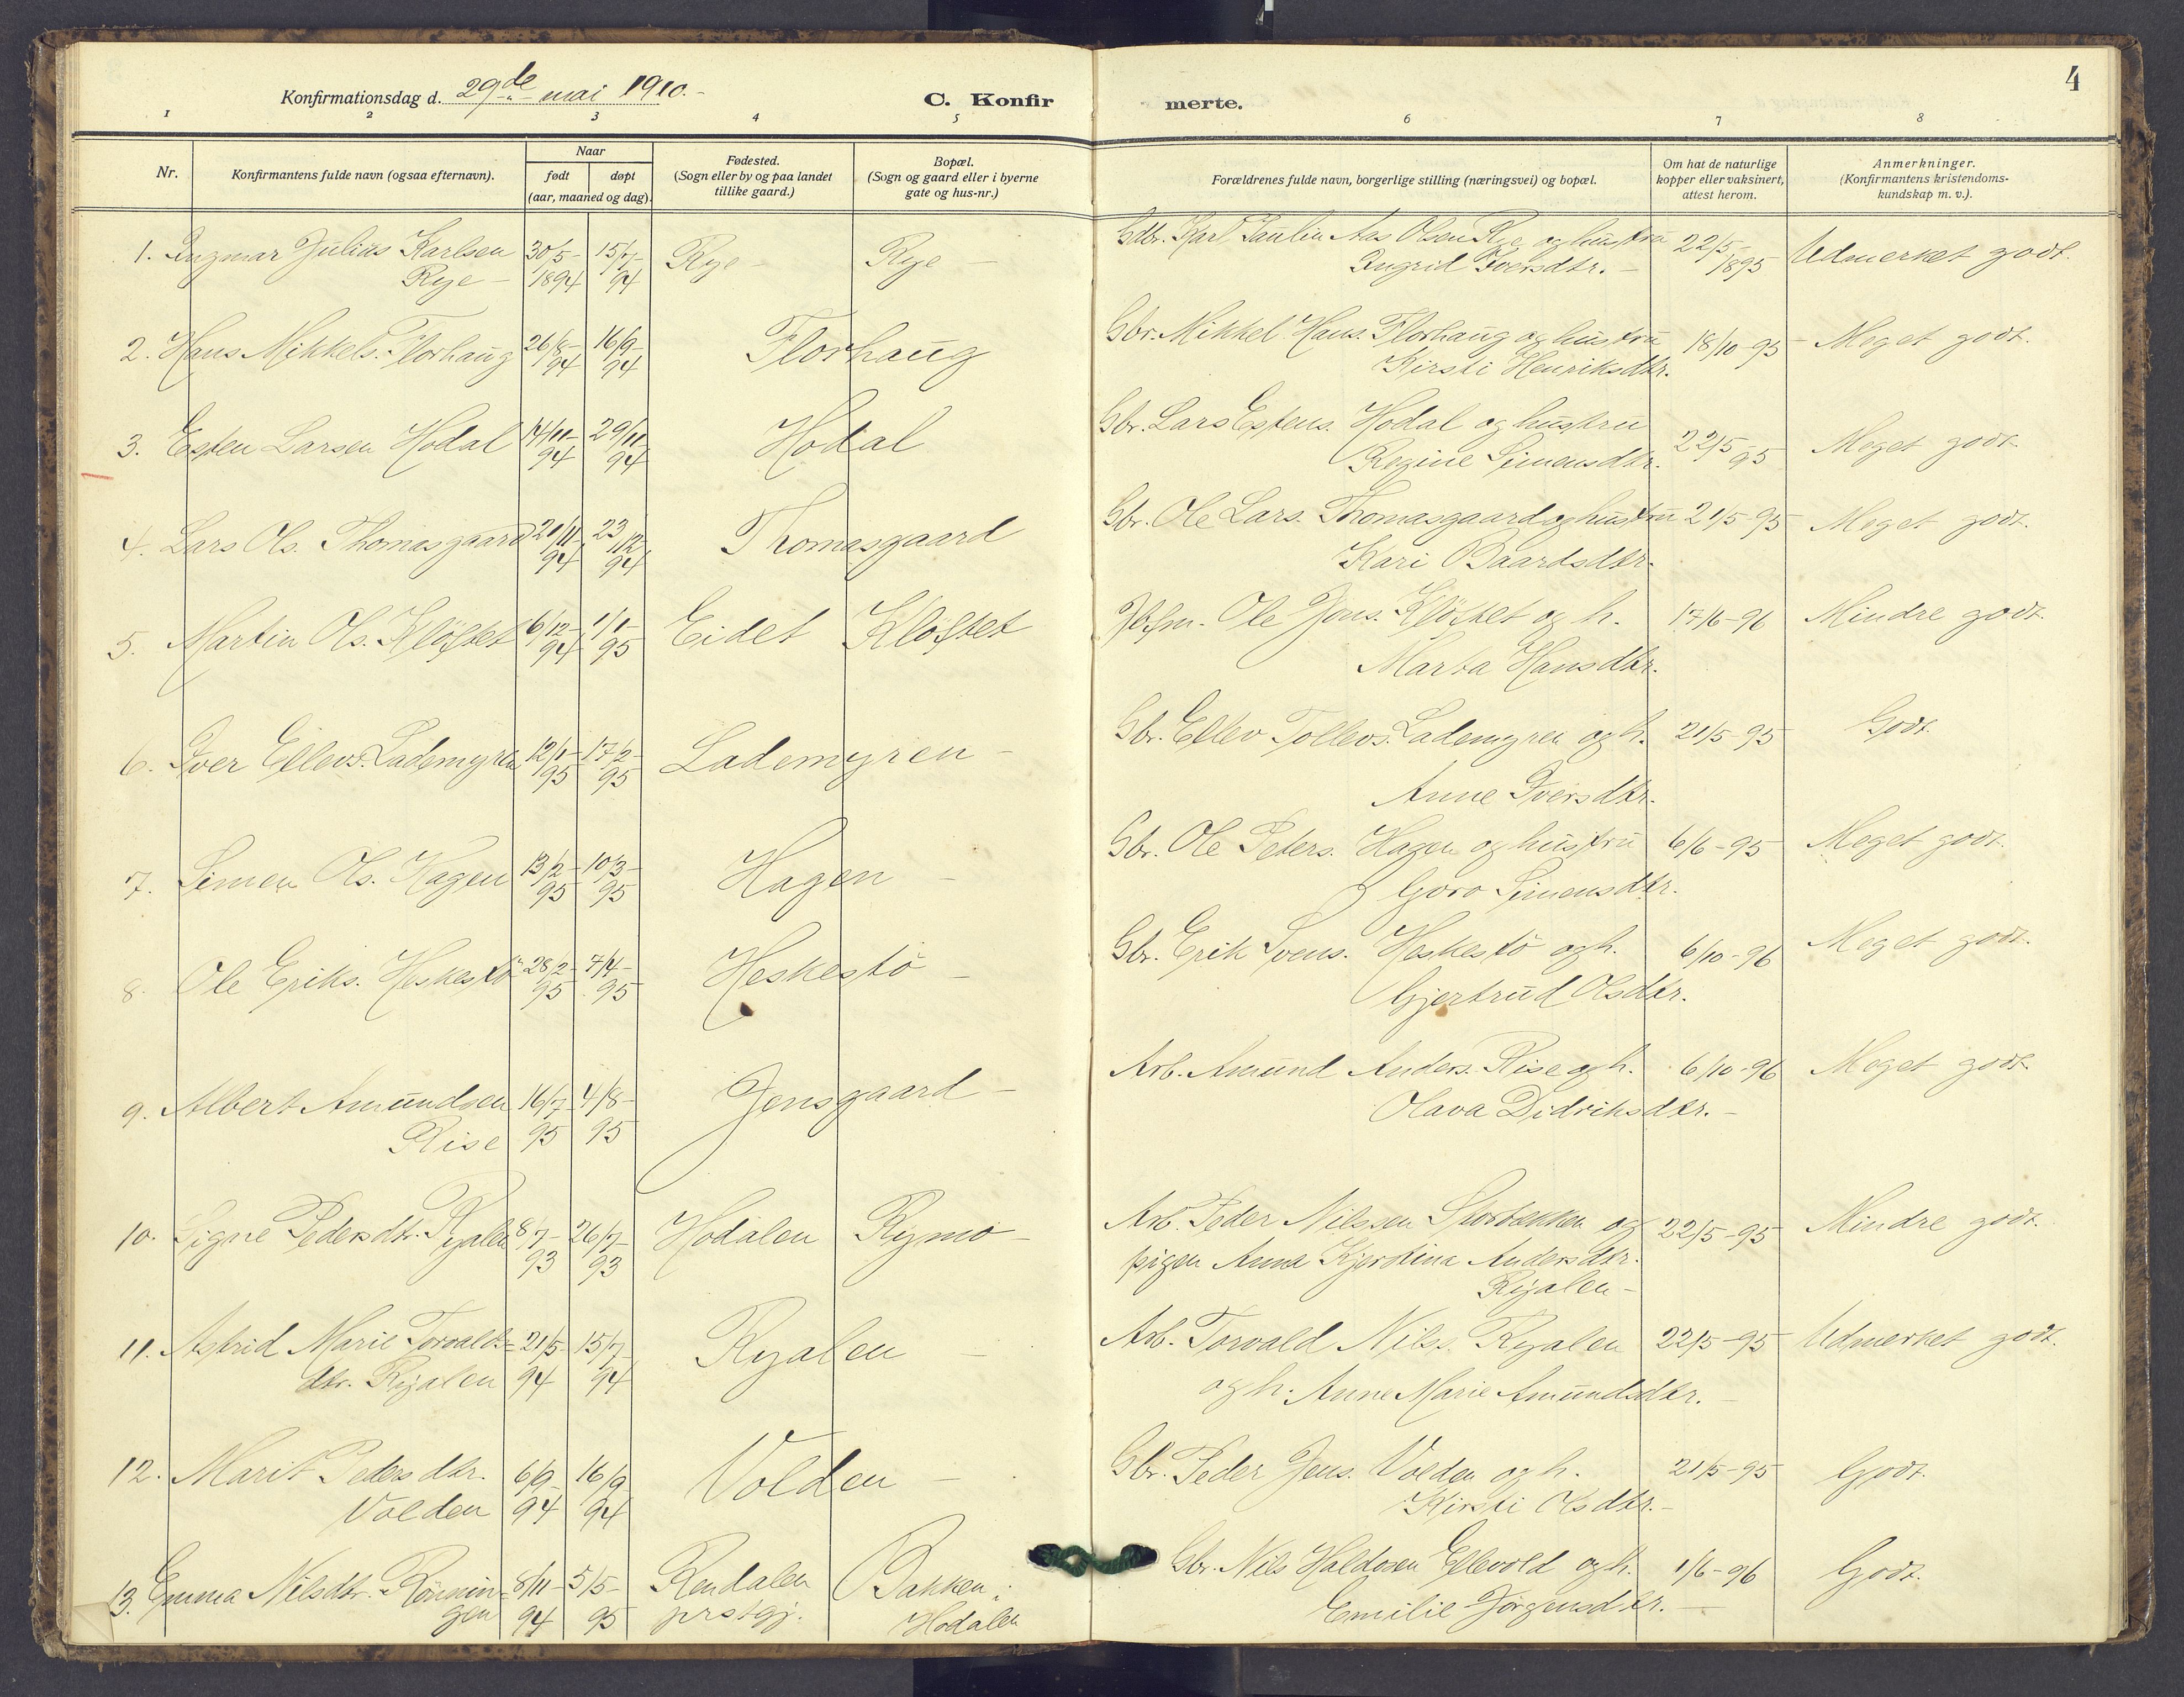 4
Konfirmationsdag d. 29de mai 1910.-
C. Konfir merte.
1 2 3 4 5 6 7 8
Nr.
Konfirmantens fulde navn (ogsaa efternavn).
Naar
født døpt
(aar, maaned og dag).
Fødested.
(Sogn eller by og paa landet
tillike gaard.)
Bopæl.
(Sogn og gaard eller i byerne
gate og hus-nr.)
Forældrenes fulde navn, borgerlige stilling (næringsvei) og bopæl.
Om hat de naturlige
kopper eller vaksinert,
attest herom.
Anmerkninger.
(Konfirmantens kristendoms-
kundskap m. v.).
1. Ingmar Julius Karlsen 30/5- 15/7- Rye - Rye - Gdbr. Karl Paulin Aas Olsen Rye og hustru 22/5- Udmerket godt.
Rye - 1894 94 Ingrid Iversdtr. - 1895
2. Hans Mikkels. Florhaug 26/8- 16/9- Florhaug Gbr. Mikkel Hans. Florhaug og hustru 18/10-95 Meget godt.
94 94 Kirsti Henriksdtr.
3. Esten Larsen Hodal 14/11- 29/11- Hodal Gbr. Lars Estens. Hodal og hustru 22/5-95 Meget godt.
94 94 Regine Simensdtr.
4. Lars Ols. Thomasgaard 20/11- 23/12- Thomasgaard Gbr. Ole Lars. Thomasgaard og hustru 21/5-95 Meget godt.
94 94 Kari Baardsdtr.
5. Martin Ols. Kløftet 6/12- 1/1- Eidet Kløftet Ole Jens. Kløftet og h. 17/6-96 Mindre godt.
94 95 Marta Hansdtr.
6. Iver Ellevs. Lademyren 12/1- 17/2- Lademyren - Gbr. Ellev Tollevs. Lademyren og h. 21/5-95 Godt.
95 95 Anne Iversdtr.
7. Simen Ols. Hagen 13/2- 10/3- Hagen - Gbr. Ole Peders. Hagen og hustru 6/6-95 Meget godt.
95 95 Goro Simensdtr.
8. Ole Eriks. Heskestø 28/2- 7/4- Heskestø - Gbr. Erik Svens. Heskestø og h. 6/10-96 Meget godt.
95 95 Gjertrud Olsdtr.
9. Albert Amundsen 16/7- 4/8- Jensgaard - Arb. Amund Anders. Rise og h. 6/10-96 Meget godt.
Rise 95 95 Olava Didriksdtr. -
10. Signe Pedersdtr. Ryalen 8/7- 26/7- Hodalen Rymo - Arb. Peder Nilssen Storbekken og 22/5-95 Mindre godt.
93 93 pigen Anna Kjerstina Andersdtr.
Ryalen -
11. Astrid Marie Torvalds= 21/5- 15/7- Ryalen - Arb. Torvald Nils. Ryalen 22/5-95 Udmerket godt.
dtr. Ryalen 94 94 og h. Anne Marie Amundsdtr. -
12. Marit Pedersdtr. 6/9- 16/9- Volden - Gbr. Peder Jens. Volden og h. 21/5-95 Godt.
Volden 94 94 Kirsti Olsdtr. -
13. Emma Nilsdtr. Rønnin= 8/11- 5/5- Rendalen Bakken i Gbr. Nils Haldosen Ellevold og h. 1/6-96 Godt.
gen 94 95 prstgj. Hodalen Emilie Jørgensdtr. -